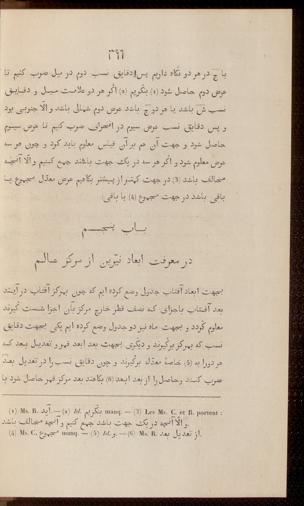 ٣٩٦
یا ج در هر دو نگاه داریم پس دقایق نسب دوم در میل ضرب کنیم تا
عرض دوم حاصل شود (١) بنگریم (٢) اگر هر دو علامت میل و دقایق
نسب ش باشد یا هر دو ج باشد عرض دوم شمالی باشد والّا جنوبی بود
و پس دقایق نسب عرض سیوم در انحراف ضرب کنیم تا عرض سیوم
حاصل شود و جهت آن هم برآن قیاس معلوم باید کرد و چون هر سه
عرض معلوم شود و اگر هر سه در یک جهت باشند جمع کنیم والّا آنچه
مخالف باشد (3) در جهت کمتر از بیشتر بکاهیم عرض معدّل مجموع یا
باقی باشد در جهت مجموع (4) یا باقی
باب پنجم
در معرفت ابعاد نیّرین از مرکز عالم
بجهت ابعاد آفتاب جدول وضع کرده ایم که چون بمرکز آفتاب در آیند
بعد آفتاب باجزای که نصف قطر خارج مرکز بآن اجزا شصت گیرند
معلوم گردد و بجهت ماه نیز دو جدول وضع کرده ایم یکی بجهت دقایق
نسب که بمرکز برگیرند و دیگری بجهت بعد ابعد قمر و تعدیل بعد که
هر دو را به (5) خاصهٔ معدّله برگیرند و چون دقایق نسب را در تعدیل بعد
ضرب کنند و حاصل را از بعد ابعد (6) بکاهند بعد مرکز قمر حاصل شود با
(1) Ms. B. آید. — (2) Id. بنگریم manq. — (3) Les Ms. C. et B. portent :
والّا آنچه در یک جهت باشد جمع کنیم و آنچه مخالف باشد.
(4) Ms. C. مجموع manq. — (5) Id. و. — (6) Ms. B. از تعدیل بعد.